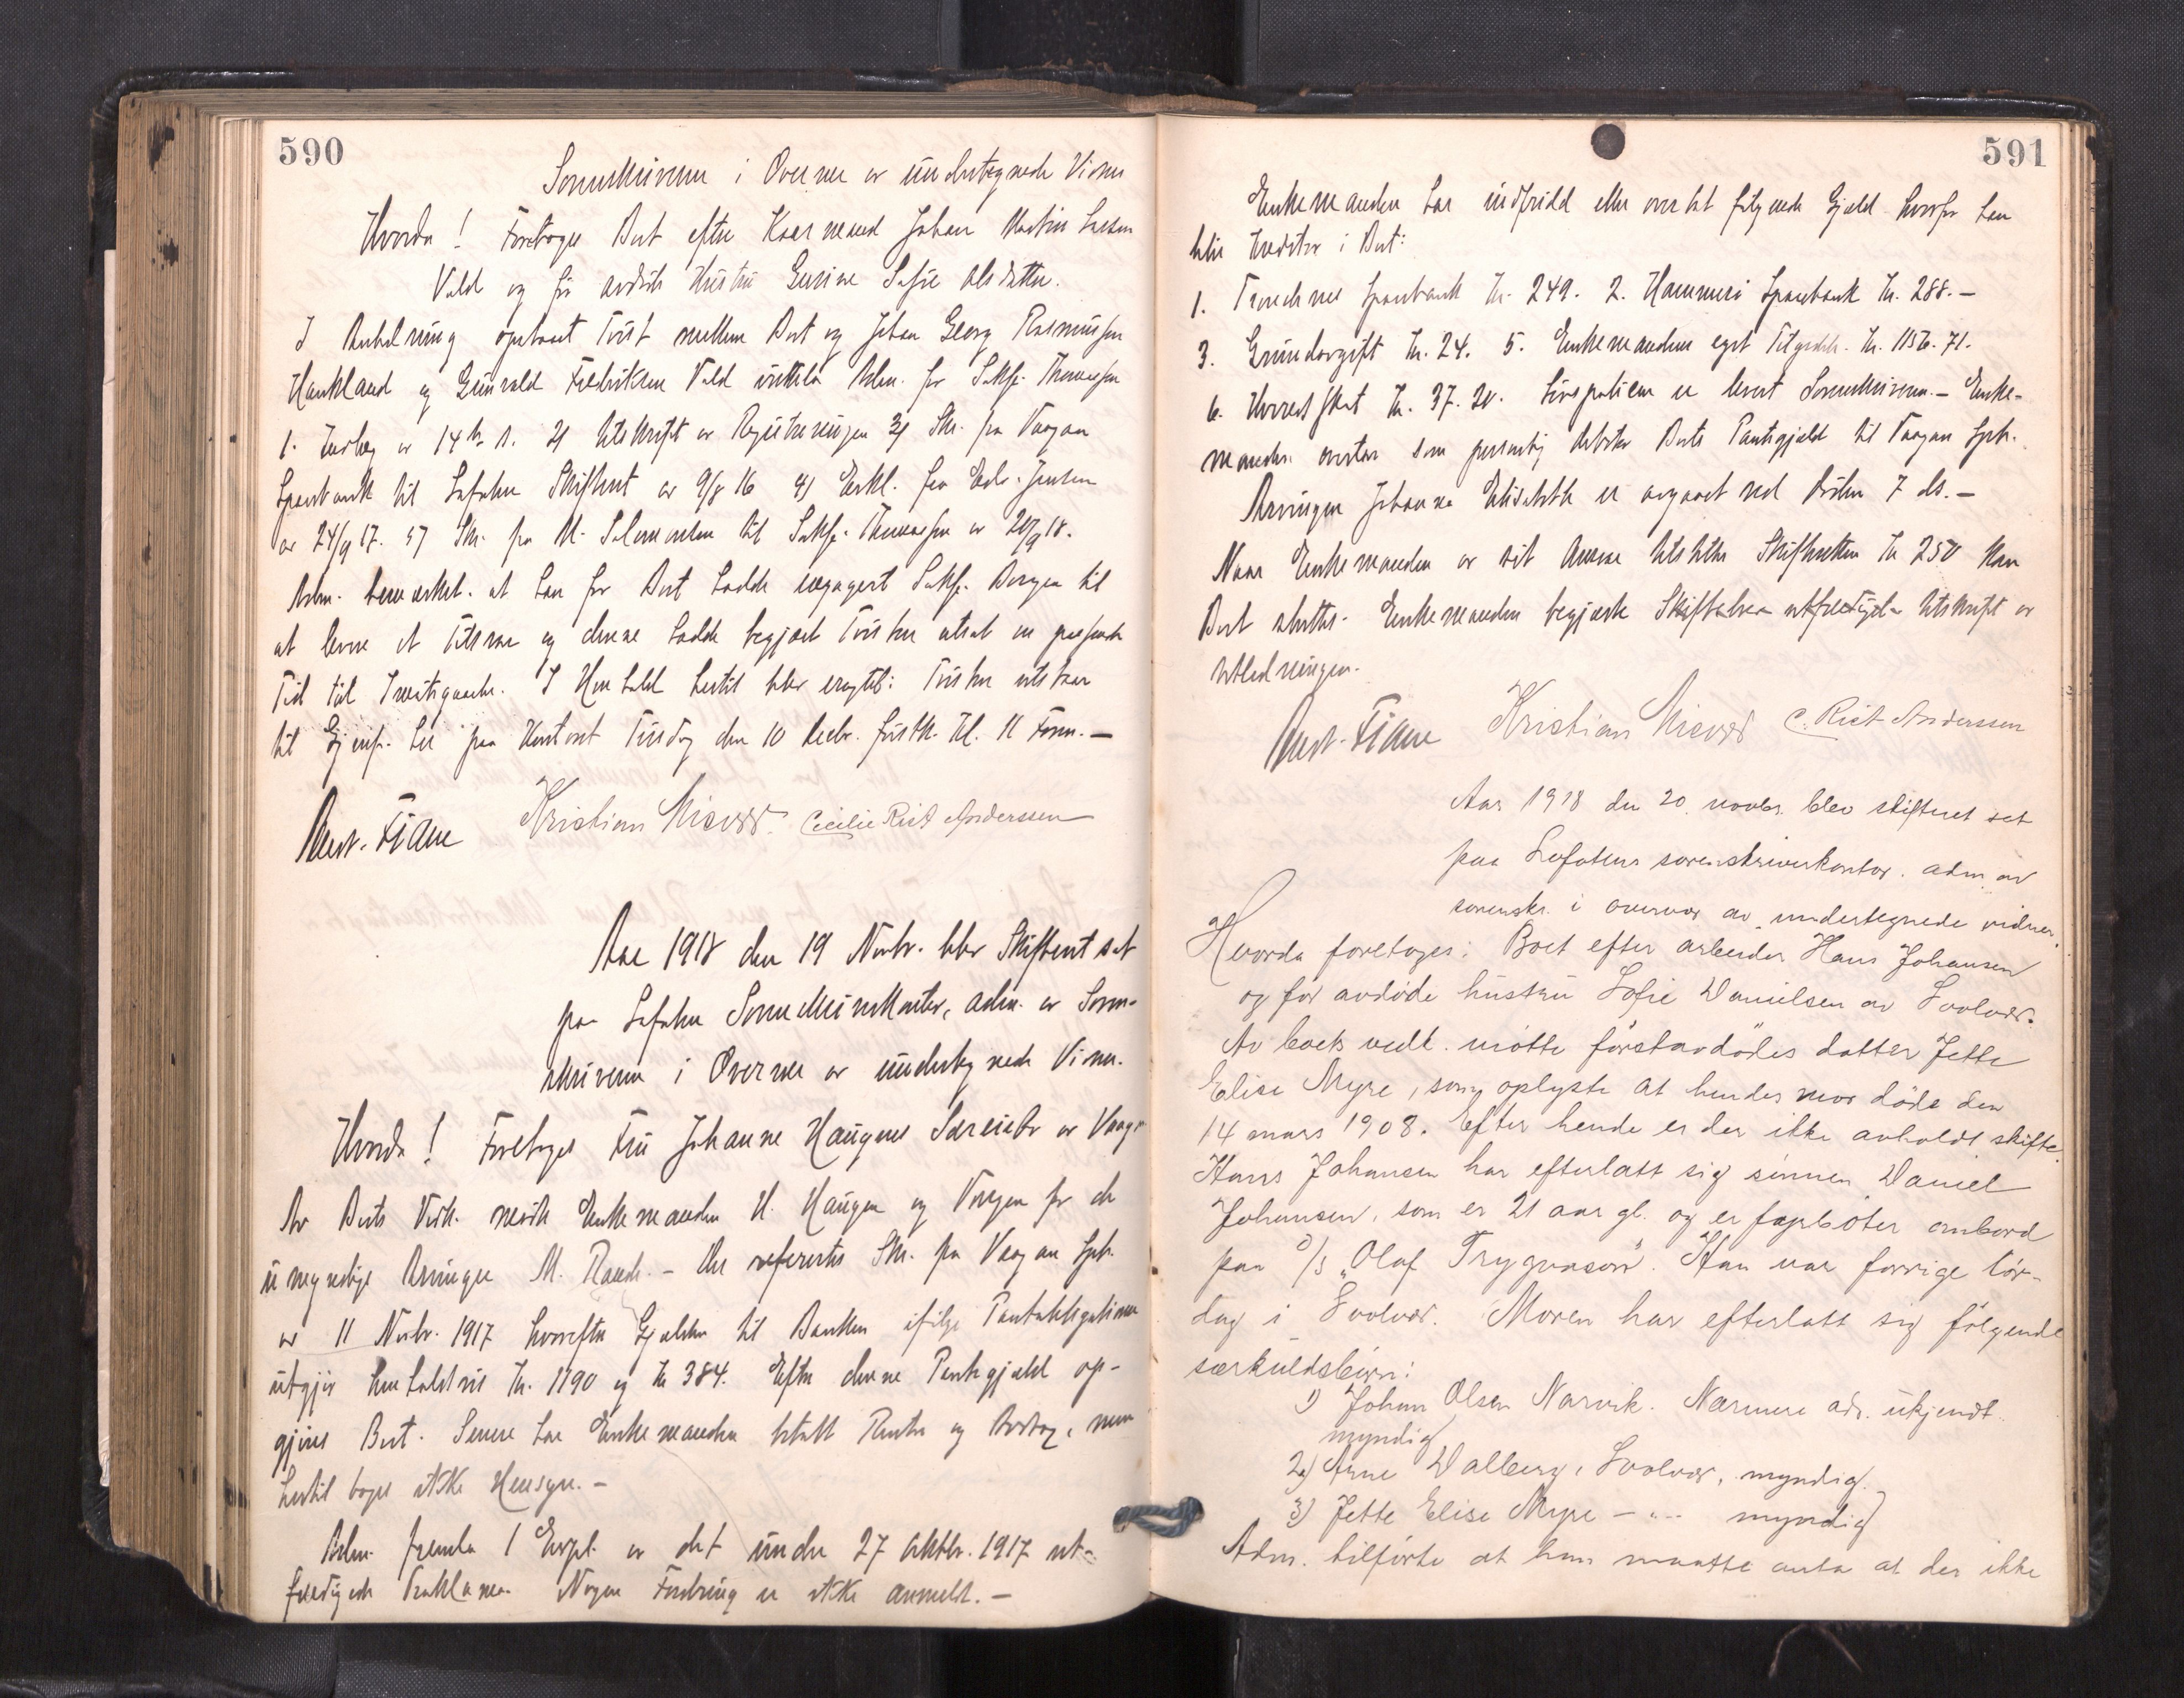 590
Sorenskriveren i Overvær av undertegnede Vidner
Hvorda! Foretoges Boet efter Kaarmand Johan Martin Larsen
Vald og før avdøde Hustru Gurine Sofie Olsdatter.
I Anledning opstaaet Tvist mellem Boet og Johan Georg Rasmussen
Haukland og Gunvald Fredriksen Vald Adm. for Sakfr. Thomassen
1. Indlæg av 14 ds. 2) Utskrift av Registreringen 3) Skr. fra Vaagan
Sparebank til Lofoten Skifteret av 9/8 16 4) Erkl. fra Edv. Jensen
av 24/9 17. 5) Skr. fra M. til Sakfr. Thomassen av 20/9 18.
Adm. bemerket at han for Boet hadde engagert Sakfr. Borgen til
at levere et Tilsvar og denne hadde begjært Tvisten utsat en passende
Tid til Imøtegaaelse. I Henhold hertil blev eragtet: Tvisten utstaar
til Gjenf. her paa Kontoret Tirsdag den 10 Decbr. førstk. Kl. 11 Form. —
Axel. Fiane Kristian Cecilie Rist Anderssen
Aar 1918 den 19 Novbr. blev Skifteret sat
paa Lofoten Sorenskriverkontor, adm. av Soren-
skriveren i Overvær av undertegnede Vidner.
Hvorda! Foretoges Fru Johanne Haugens av
Av Boets Vedk. mødte Enkemanden H. Haugen og Vergen for de
umyndige Arvinger M. Rand. — Der refereres Skr. fra Vaagan Spb.
av 11 Novbr. 1917 hvorefter Gjælden til Banken ifølge Panteobligationer
utgjør henholdsvis Kr. 1190 og Kr 384. Efter denne Pantegjæld op-
gjøres Boet. Senere har Enkemanden betalt Renter og Avdrag, men
hertil tages ikke Hensyn. —
Adm. fremla 1 Expl. av det under 27 Oktbr. 1917 ut-
færdigede Proklama. Nogen Fordring er ikke anmeldt. —
591
Enkemanden har indfridd eller overtat følgende Gjæld hvorfor han
blir Kreditor i Boet:
1. Sparebank Kr. 249. 2. Hammerø Sparebank Kr. 288. —
3. Grundavgift Kr. 24. 5. Enkemandens eget Tilgodeh. Kr. 1156. 71.
6. Herredskat Kr. 37. 20. Livspolicen er levert Sorenskriveren. — Enke-
manden overtar som personlig Debitor Boets Pantegjæld til Vaagan Spb.
Arvingen Johanna Elisabeth er avgaaet ved Døden 7 ds. —
Naar Enkemanden av sit Anvar tilstiller Skifteretten Kr 250 kan
Boet sluttes. Enkemanden begjærte Skiftebrev utfærdiget Utskrift av
Utlodningen.
Axel. Fiane Kristian C. Rist Anderssen
Aar 1918 den 20. novbr. blev skifteret sat
paa Lofotens sorenskriverkontor. adm. av
sorenskr. i overvær av undertegnede vidner.
Hvorda foretoges: Boet efter arbeider Hans Johansen
og før avdøde hustru Sofie Danielsen av Svolvær.
Av boets vedk. møtte førstavdødes datter Jette
Elise Myre, som oplyste at hendes mor døde den
14 mars 1908. Efter hende er der ikke avholdt skifte.
Hans Johansen har efterlatt sig sønnen Daniel
Johansen, som er 21 aar gl. og er fyrbøter ombord
paa D/S "Olaf Trygvason". Han var forrige lør-
dag i Svolvær. Moren har efterlatt sig følgende
særkuldsbørn:
1) Johan Olsen Narvik. Nærmere adr. ukjendt.
myndig
2) Arne Dalberg, Svolvær, myndig.
3) Jette Elise Myre — " — myndig
Adm. tilførte at han maatte anta at der ikke